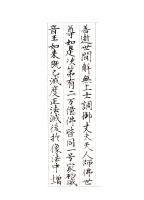 善逝世間解無上士調御丈夫天人師佛世
尊如是次第有二万億佛皆同一号最初威
音王如来既已滅度正法滅後於像法中增